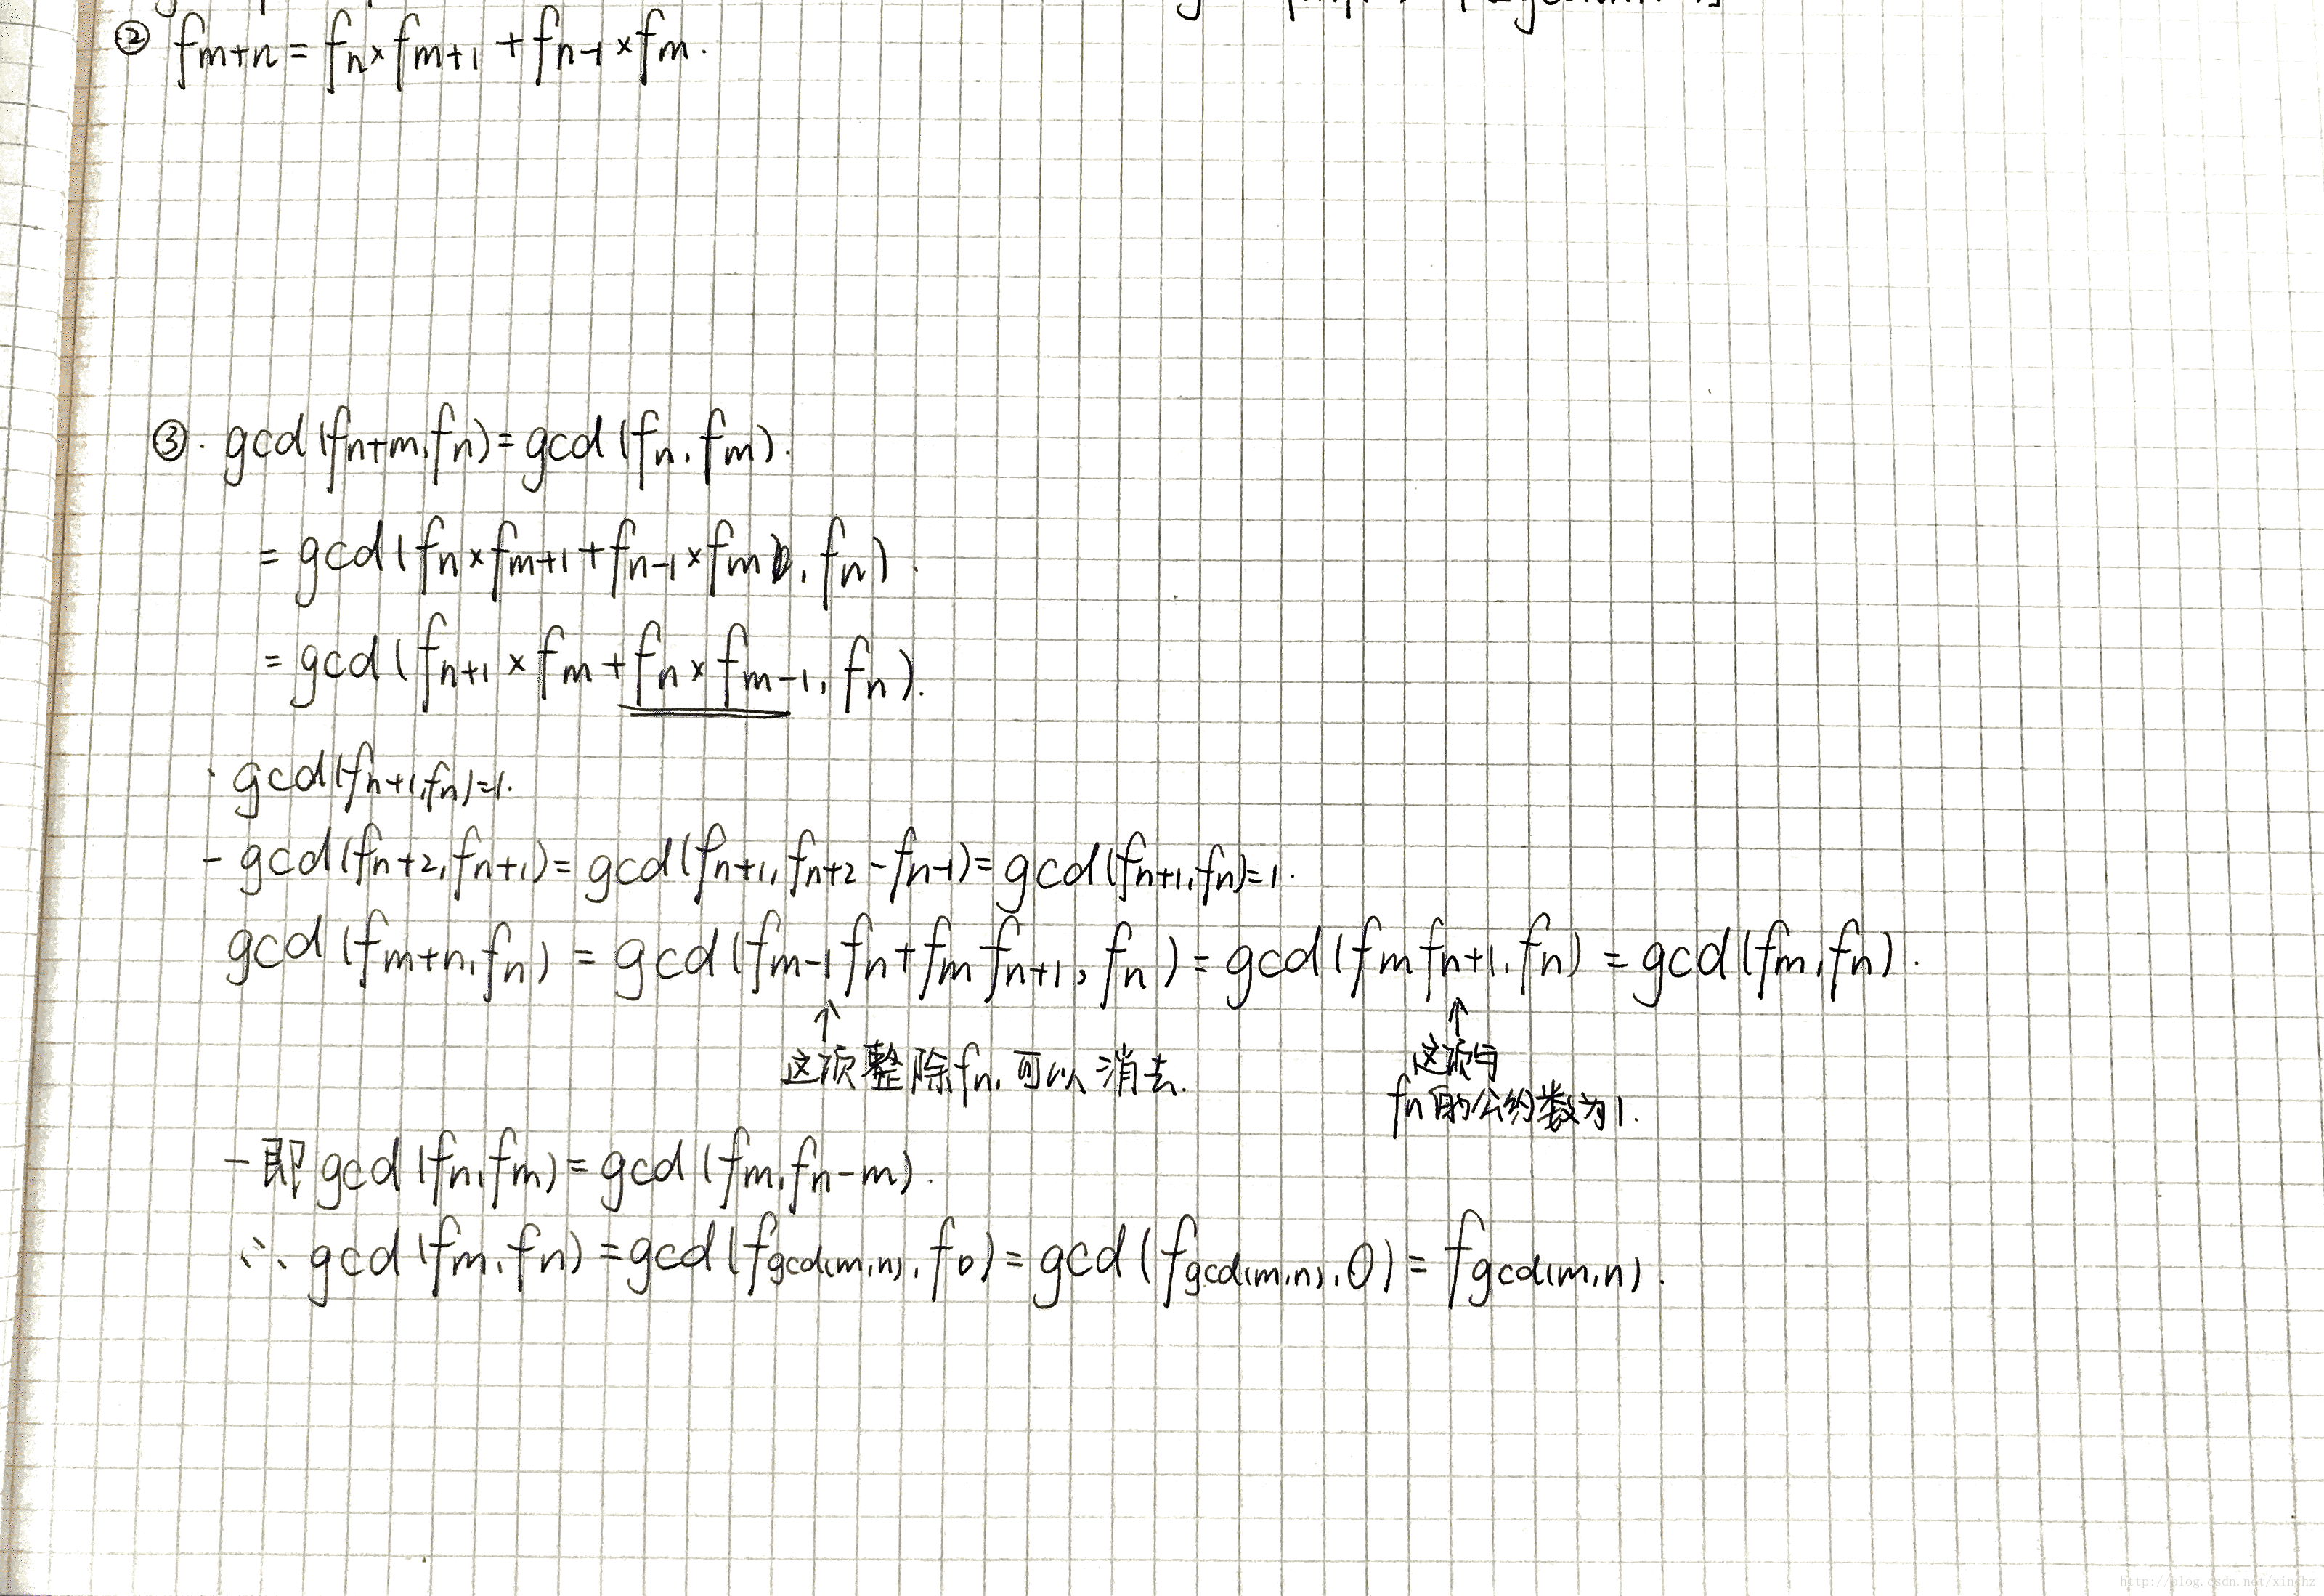 ② fm+n = fn×fm+1 + fn-1×fm.
③. gcd(fn+m, fn) = gcd(fn, fm).
= gcd(fn×fm+1 + fn-1×fm, fn).
= gcd(fn+1×fm + fn×fm-1, fn).
· gcd(fn+1, fn)=1.
- gcd(fn+2, fn+1) = gcd(fn+1, fn+2 - fn-1) = gcd(fn+1, fn)=1.
gcd(fm+n, fn) = gcd(fm-1fn + fmfn+1, fn) = gcd(fmfn+1, fn) = gcd(fm, fn).
↑ ↑
这项整除fn, 可以消去. 这项与
fn的公约数为1.
- 即 gcd(fn, fm) = gcd(fm, fn-m).
∴ gcd(fm, fn) = gcd(fgcd(m,n), f0) = gcd(fgcd(m,n), 0) = fgcd(m,n).